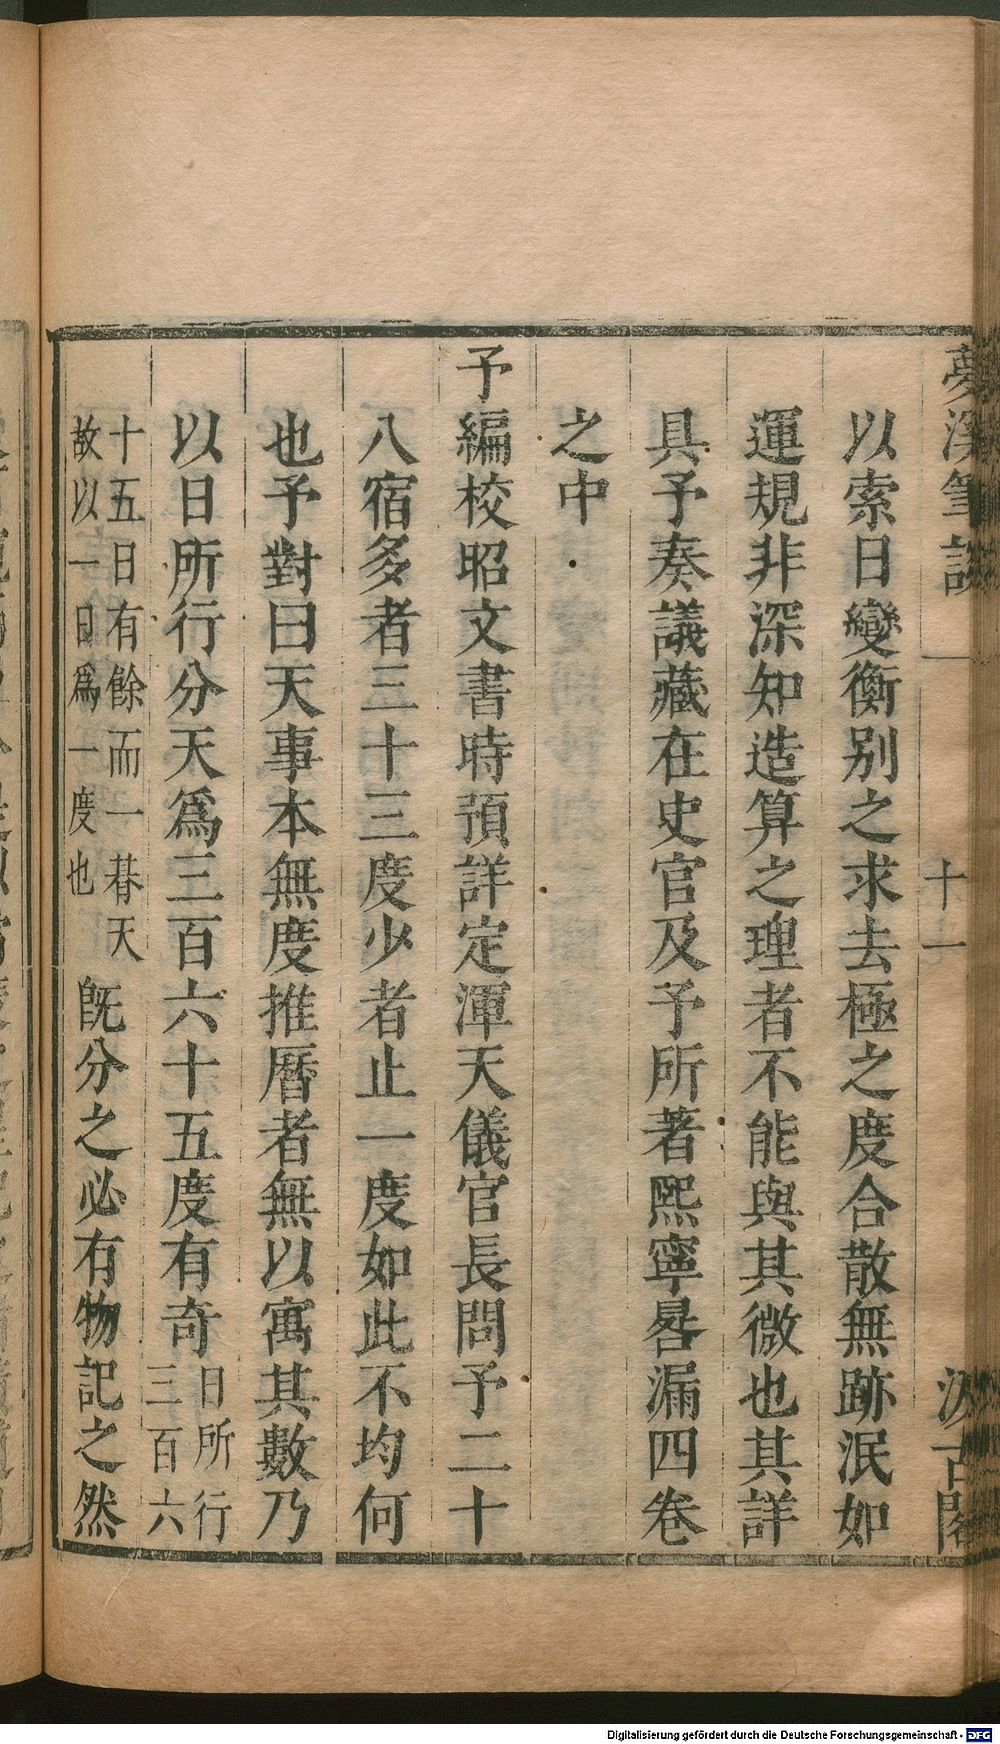 夢溪筆談 一 十一 汲古閣
以索日變衡别之求去極之度合散無跡泯如
運規非深知造算之理者不能與其微也其詳
具予奏議藏在史官及予所著熙寧晷漏四卷
之中
予編校昭文書時預詳定渾天儀官長問予二十
八宿多者三十三度少者止一度如此不均何
也予對曰天事本無度推曆者無以寓其數乃
以日所行分天爲三百六十五度有奇日所行三百六
十五日有餘而一朞天故以一日爲一度也旣分之必有物記之然
Digitalisierung gefördert durch die Deutsche Forschungsgemeinschaft - DFG